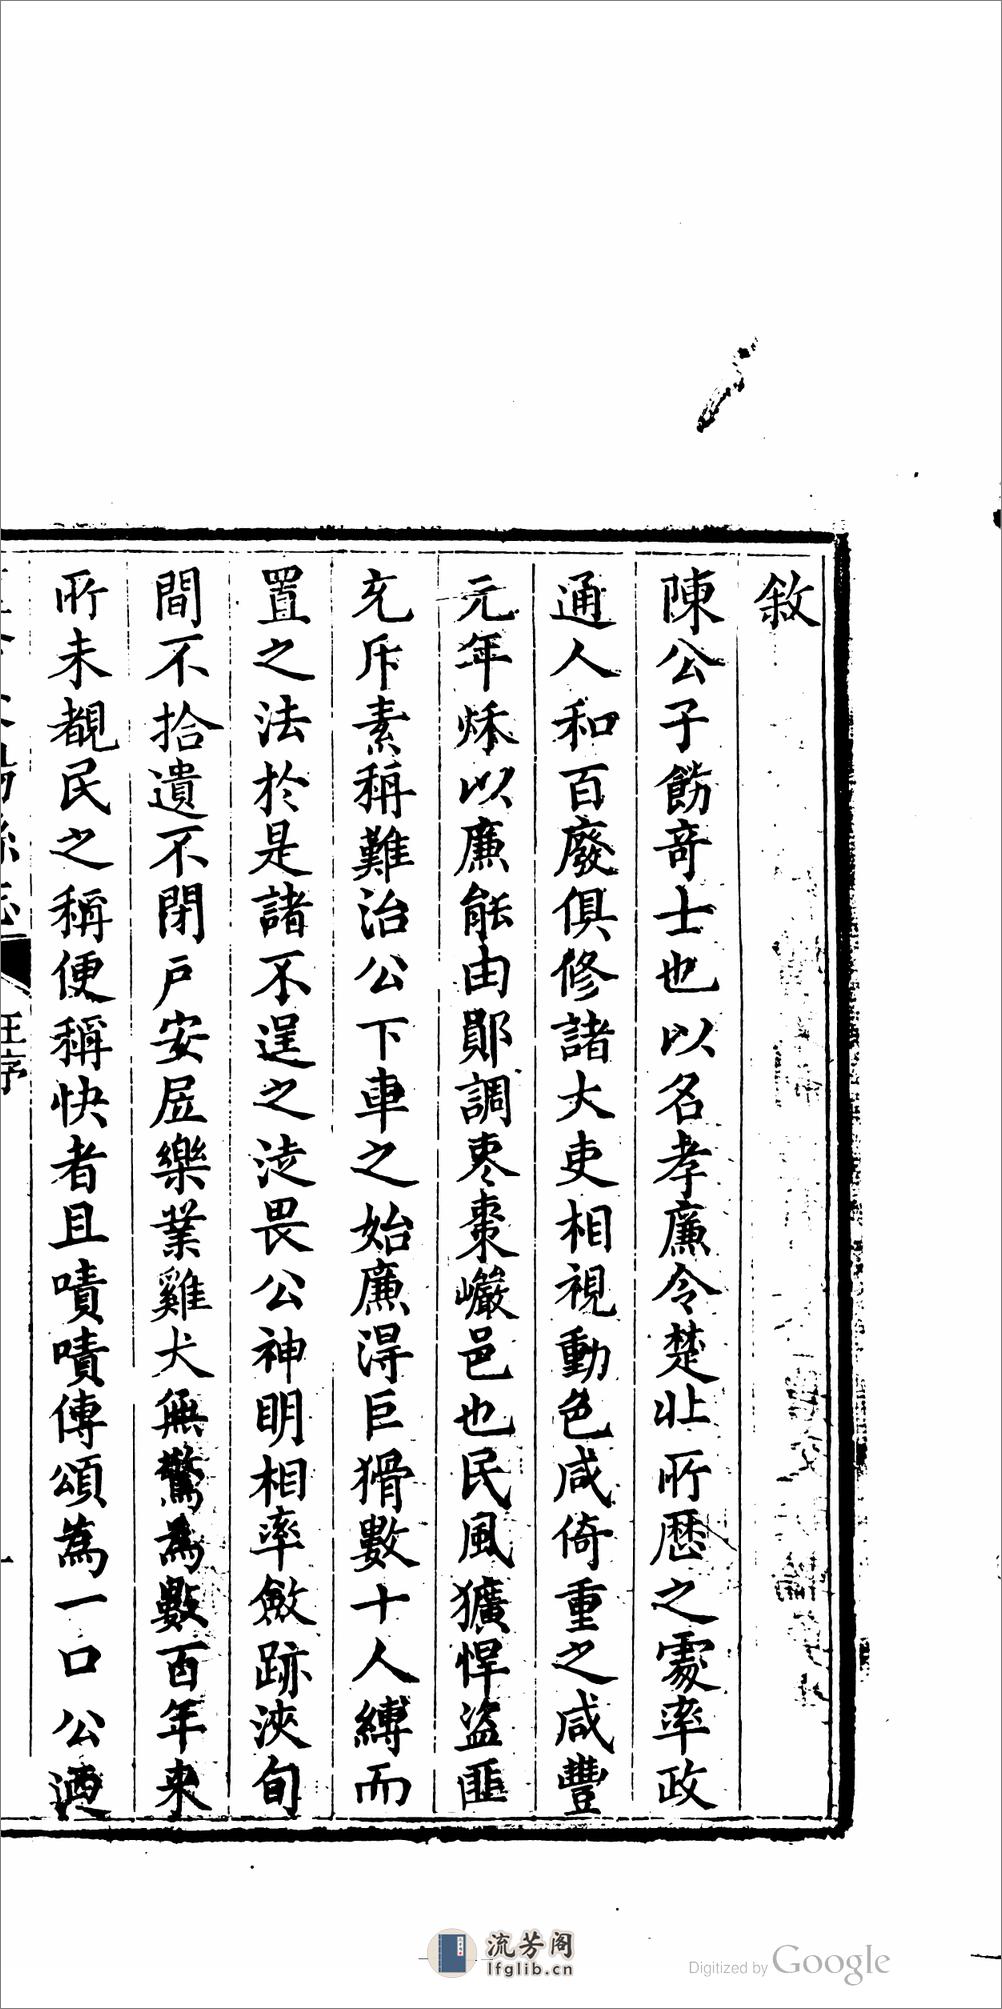 敘
陳公子飭奇士也以名孝廉令楚北所歷之處率政
通人和百廢俱修諸大吏相視動色咸倚重之咸豐
元年秌以廉能由鄖調棗棗巖邑也民風獷悍盜匪
充斥素稱難治公下車之始廉淂巨猾數十人縛而
置之法於是諸不逞之徒畏公神明相率斂跡浹旬
間不拾遺不閉戶安居樂業雞犬無驚為數百年來
所未覩民之稱便稱快者且嘖嘖傳頌為一口公迺
汪序
一
流芳阁
lfglib.cn
Digitized by Google